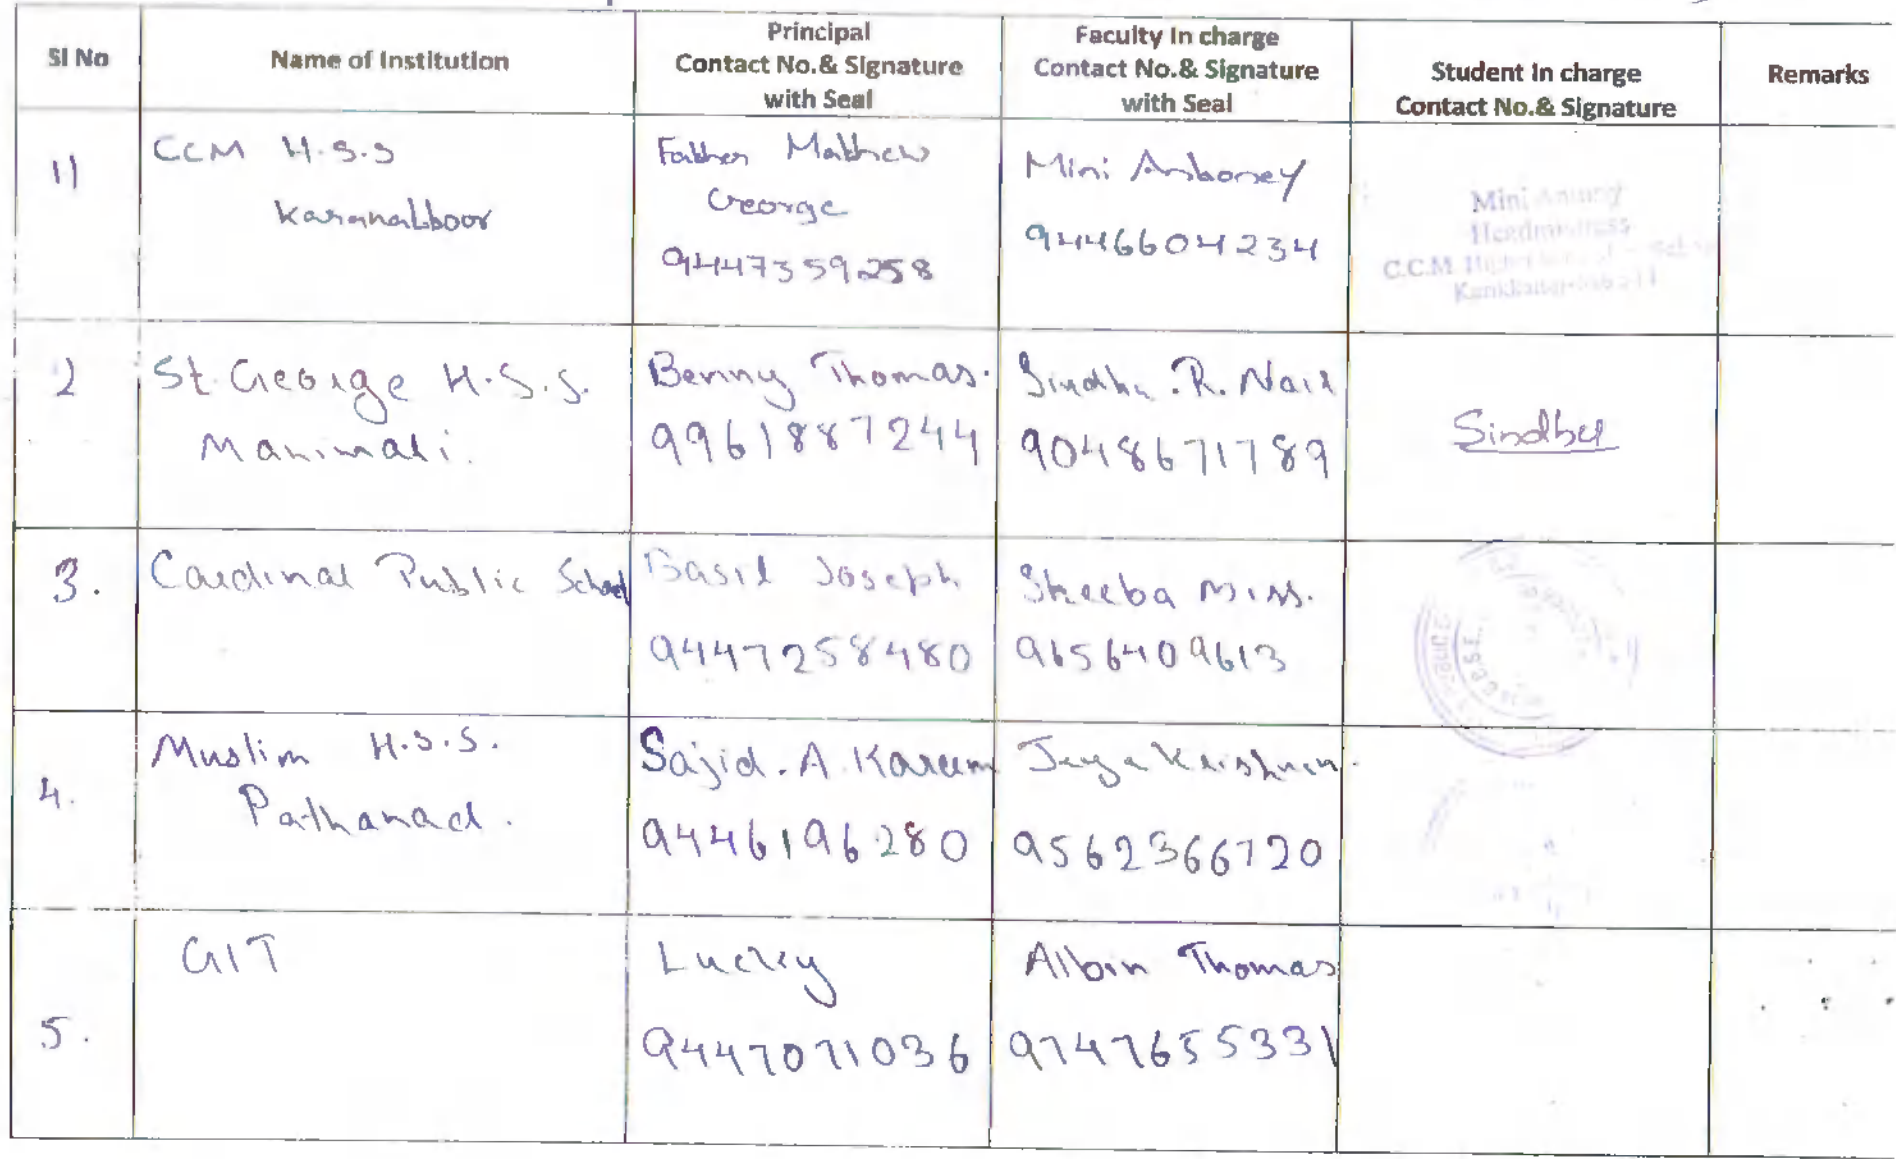 Sl No
Name of Institution
Principal
Contact No.& Signature
with Seal
Faculty In charge
Contact No.& Signature
with Seal
Student In charge
Contact No.& Signature
Remarks
1)
CCM H.S.S
Father Mathew
George
9447359258
Mini Antoney
9446604234
Mini
Headmistress
C.C.M. Higher
2
St. George H.S.S.
Manimali.
Benny Thomas.
9961887244
Sindhu .R. Nair
9048671789
Sindhu
3.
Cardinal Public School
Basil Joseph
9447258480
Sheeba Miss.
9656409613
C.B.S.E.
4.
Muslim H.S.S.
Pathanad.
Sajid.A.Kareem
9446196280
Jayakrishnan.
9562366720
5.
GIT
Lucky
9447071036
Albin Thomas
9747655331